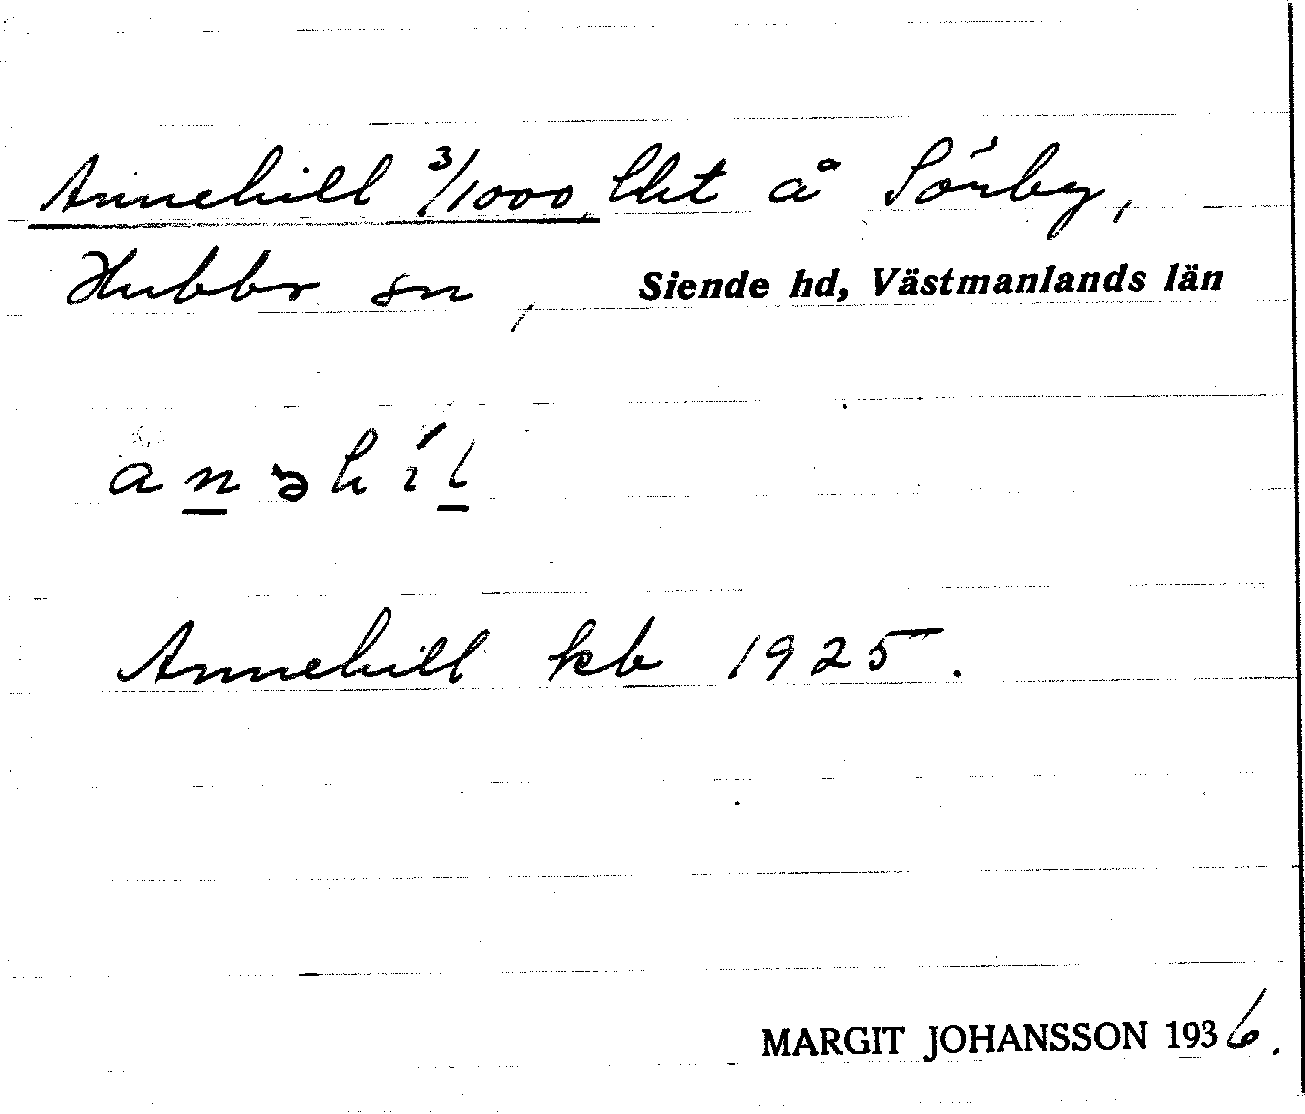 Annehill 3/1000, lht å Sörby,
Hubbo sn, Siende hd, Västmanlands län
anəhíl
Annehill kb 1925.
MARGIT JOHANSSON 1936.